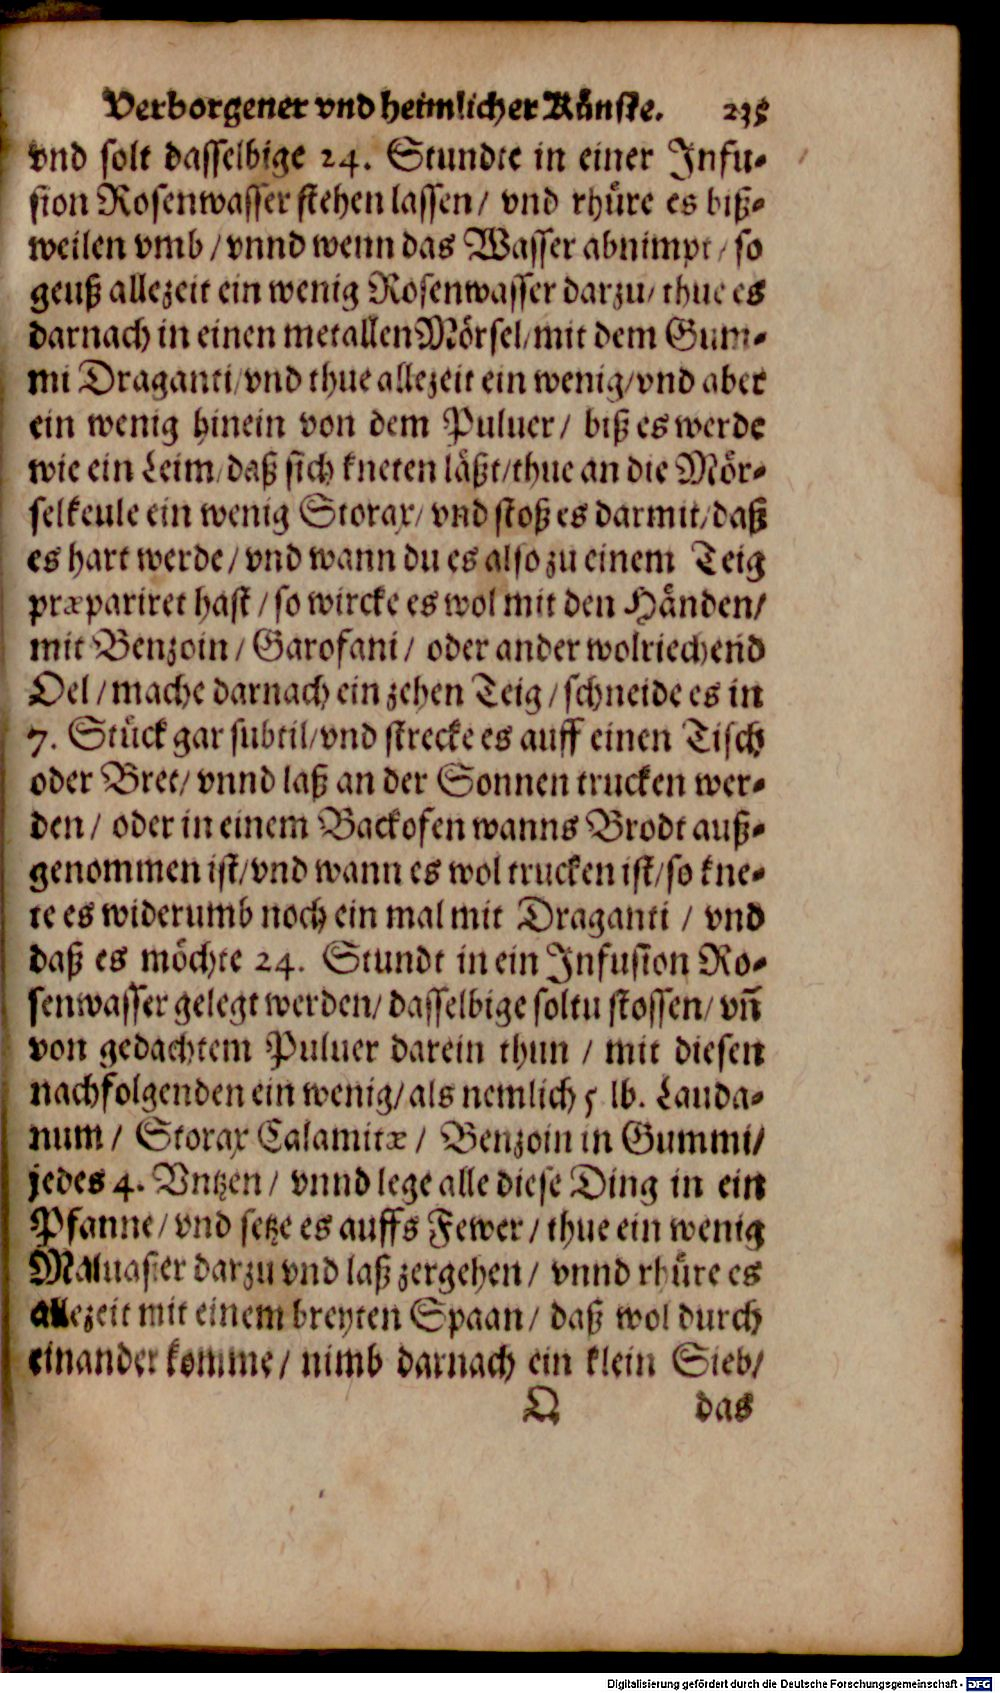 Verborgener vnd heimlicher Künste. 235
vnd solt dasselbige 24. Stundte in einer Infu-
sion Rosenwasser stehen lassen/ vnd rhüre es biß-
weilen vmb / vnnd wenn das Wasser abnimpt / so
geuß allezeit ein wenig Rosenwasser darzu/ thue es
darnach in einen metallen Mörsel/ mit dem Gum-
mi Draganti/ vnd thue allezeit ein wenig/ vnd aber
ein wenig hinein von dem Puluer / biß es werde
wie ein Leim/ daß sich kneten läßt/ thue an die Mör-
selkeule ein wenig Storax/ vnd stoß es darmit/ daß
es hart werde / vnd wann du es also zu einem Teig
præpariret hast / so wircke es wol mit den Händen/
mit Benzoin / Garofani / oder ander wolriechend
Oel / mache darnach ein zehen Teig / schneide es in
7. Stück gar subtil/ vnd strecke es auff einen Tisch
oder Bret/ vnnd laß an der Sonnen trucken wer-
den / oder in einem Backofen wanns Brodt auß-
genommen ist/ vnd wann es wol trucken ist/ so kne-
te es widerumb noch ein mal mit Draganti / vnd
daß es möchte 24. Stundt in ein Infusion Ro-
senwasser gelegt werden/ dasselbige soltu stossen/ vñ
von gedachtem Puluer darein thun / mit diesen
nachfolgenden ein wenig/ als nemlich 5 lb. Lauda-
num / Storax Calamitæ / Benzoin in Gummi/
jedes 4. Vntzen / vnnd lege alle diese Ding in ein
Pfanne / vnd setze es auffs Fewer / thue ein wenig
Maluasier darzu vnd laß zergehen / vnnd rhüre es
allezeit mit einem breyten Spaan / daß wol durch
einander komme / nimb darnach ein klein Sieb/
Q das
Digitalisierung gefördert durch die Deutsche Forschungsgemeinschaft - DFG